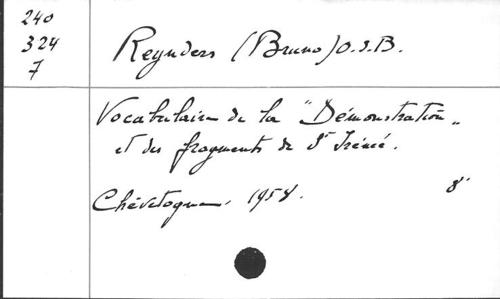 240
324
7
Reynders (Bruno) O.S.B.
Vocabulaire de la "Démonstration"
et des fragments de St Irénée.
Chévetogne, 1958.
8°